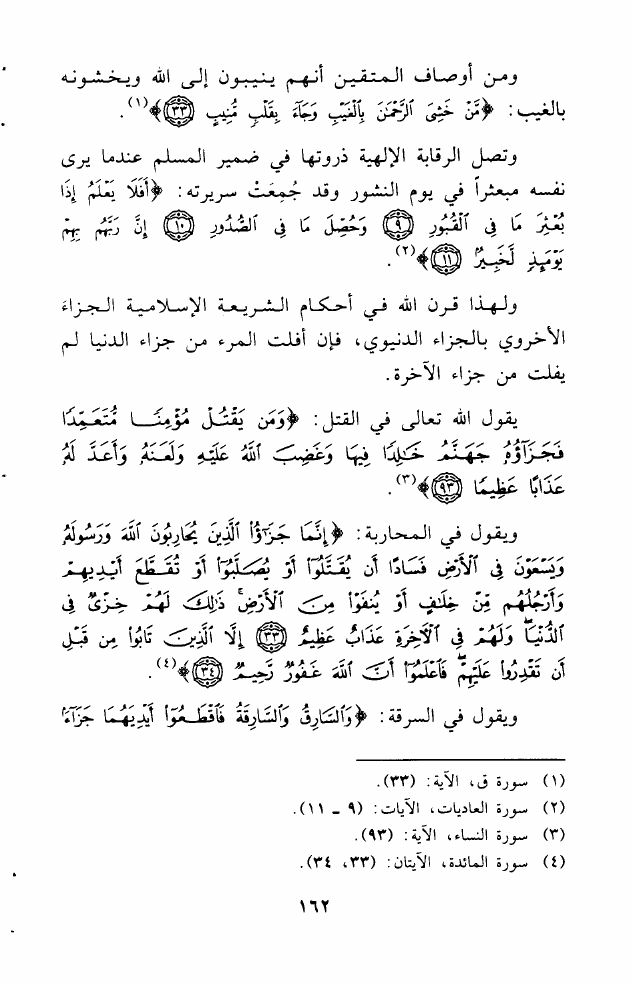 ومن أوصاف المتقين أنهم ينيبون إلى الله ويخشونه
بالغيب: ﴿مَّنْ خَشِىَ ٱلرَّحْمَٰنَ بِٱلْغَيْبِ وَجَآءَ بِقَلْبٍ مُّنِيبٍ ٣٣﴾(١).
وتصل الرقابة الإلهية ذروتها في ضمير المسلم عندما يرى
نفسه مبعثراً في يوم النشور وقد جُمِعَتْ سريرته: ﴿أَفَلَا يَعْلَمُ إِذَا
بُعْثِرَ مَا فِى ٱلْقُبُورِ ٩ وَحُصِّلَ مَا فِى ٱلصُّدُورِ ١٠ إِنَّ رَبَّهُم بِهِمْ
يَوْمَئِذٍ لَّخَبِيرٌۢ ١١﴾(٢).
ولهذا قرن الله في أحكام الشريعة الإسلامية الجزاءَ
الأخروي بالجزاء الدنيوي، فإن أفلت المرء من جزاء الدنيا لم
يفلت من جزاء الآخرة.
يقول الله تعالى في القتل: ﴿وَمَن يَقْتُلْ مُؤْمِنًا مُّتَعَمِّدًا
فَجَزَآؤُهُۥ جَهَنَّمُ خَٰلِدًا فِيهَا وَغَضِبَ ٱللَّهُ عَلَيْهِ وَلَعَنَهُۥ وَأَعَدَّ لَهُۥ
عَذَابًا عَظِيمًا ٩٣﴾(٣).
ويقول في المحاربة: ﴿إِنَّمَا جَزَٰٓؤُا۟ ٱلَّذِينَ يُحَارِبُونَ ٱللَّهَ وَرَسُولَهُۥ
وَيَسْعَوْنَ فِى ٱلْأَرْضِ فَسَادًا أَن يُقَتَّلُوٓا۟ أَوْ يُصَلَّبُوٓا۟ أَوْ تُقَطَّعَ أَيْدِيهِمْ
وَأَرْجُلُهُم مِّنْ خِلَٰفٍ أَوْ يُنفَوْا۟ مِنَ ٱلْأَرْضِ ۚ ذَٰلِكَ لَهُمْ خِزْىٌ فِى
ٱلدُّنْيَا ۖ وَلَهُمْ فِى ٱلْءَاخِرَةِ عَذَابٌ عَظِيمٌ ٣٣ إِلَّا ٱلَّذِينَ تَابُوا۟ مِن قَبْلِ
أَن تَقْدِرُوا۟ عَلَيْهِمْ ۖ فَٱعْلَمُوٓا۟ أَنَّ ٱللَّهَ غَفُورٌ رَّحِيمٌ ٣٤﴾(٤).
ويقول في السرقة: ﴿وَٱلسَّارِقُ وَٱلسَّارِقَةُ فَٱقْطَعُوٓا۟ أَيْدِيَهُمَا جَزَآءًۢ
(١) سورة ق، الآية: (٣٣).
(٢) سورة العاديات، الآيات: (٩ ـ ١١).
(٣) سورة النساء، الآية: (٩٣).
(٤) سورة المائدة، الآيتان: (٣٣، ٣٤).
١٦٢